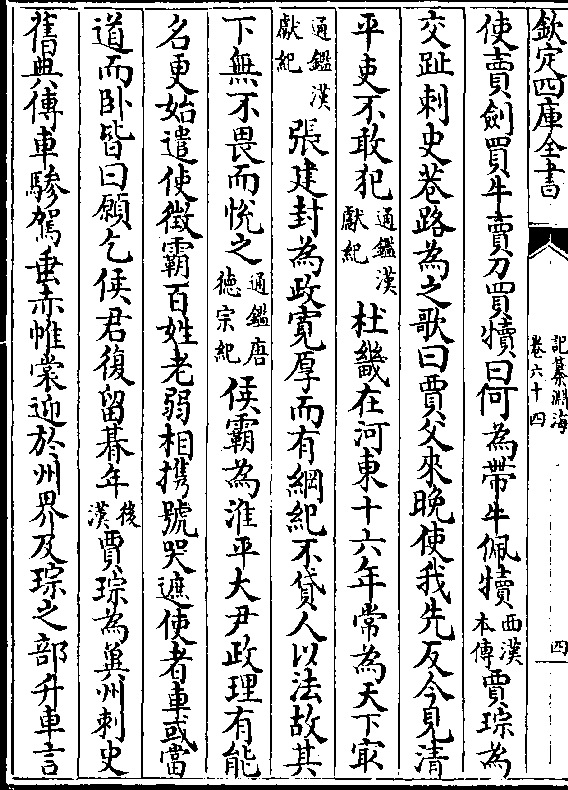 欽定四庫全書
記纂淵海
卷六十四
四
使賣劍買牛賣刀買犢曰何為帶牛佩犢西漢本傳賈琮為
交趾刺史巷路為之歌曰賈父來晚使我先反今見清
平吏不敢犯通鑑漢獻紀杜畿在河東十六年常為天下㝡
通鑑漢獻紀張建封為政寛厚而有綱紀不貸人以法故其
下無不畏而悅之通鑑唐德宗紀侯霸為淮平大尹政理有能
名更始遣使徵霸百姓老弱相携號哭遮使者車或當
道而卧皆曰願乞侯君復留朞年後漢賈琮為冀州刺史
舊典傳車驂駕垂赤帷裳迎於州界及琮之部升車言